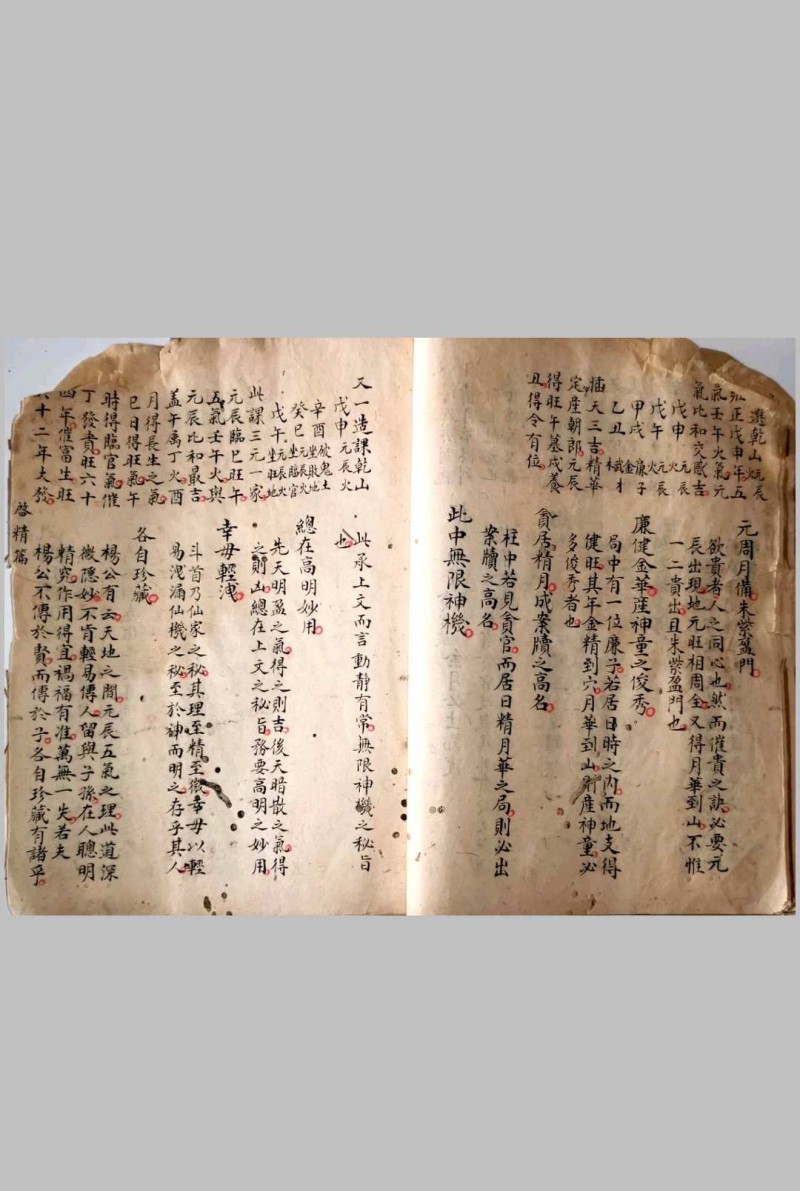 選乾山火元辰
弘正戊申年五
氣壬午火氣元
氣比和交感吉
戊申火元辰
戊午火元辰
甲戌金廉子
乙丑木武才
插天三吉精華
定産朝郎元辰
得旺午墓戌養
丑得令有位
元周月備朱紫盈門
欲貴者人之同心也然而催貴之訣必要元
辰出現地元旺相周全又得月華到山不惟
一二貴出且朱紫盈門也
廉健金華産神童之俊秀
局中有一位廉子若居日時之內而地支得
健旺其年金精到六月華到山則産神童必
多俊秀者也
貪居精月成案牘之高名
柱中若見貪官而居日精月華之局則必出
案牘之高名
此中無限神機
又一造課乾山
戊申元辰火
辛酉破鬼土坐敗地
癸巳元辰火坐臨官
戊午元辰火坐旺地
此課三元一家
元辰臨巳旺午
五氣壬午火與
元辰比和最吉
蓋午為丁火酉
月得長生之氣
巳日得旺氣午
時得臨官氣催
丁發貴旺六十
四年催富生旺
六十二年大發
此承上文而言動靜有常無限神機之秘旨
也
總在高明妙用
先天明盈之氣得之則吉後天暗散之氣得
之則凶總在上文之秘旨務要高明之妙用
幸毋輕洩
斗首乃仙家之秘其理至精至微幸毋以輕
易洩漏仙機之秘至於神而明之存乎其人
各自珍藏
楊公有云天地之間元辰五氣之理此道深
微隱妙不肯輕易傳人留與子孫在人聰明
精究作用得宜禍福有准萬無一失若夫
楊公不傳於賛而傳於子各自珍藏有諸乎
啓精篇